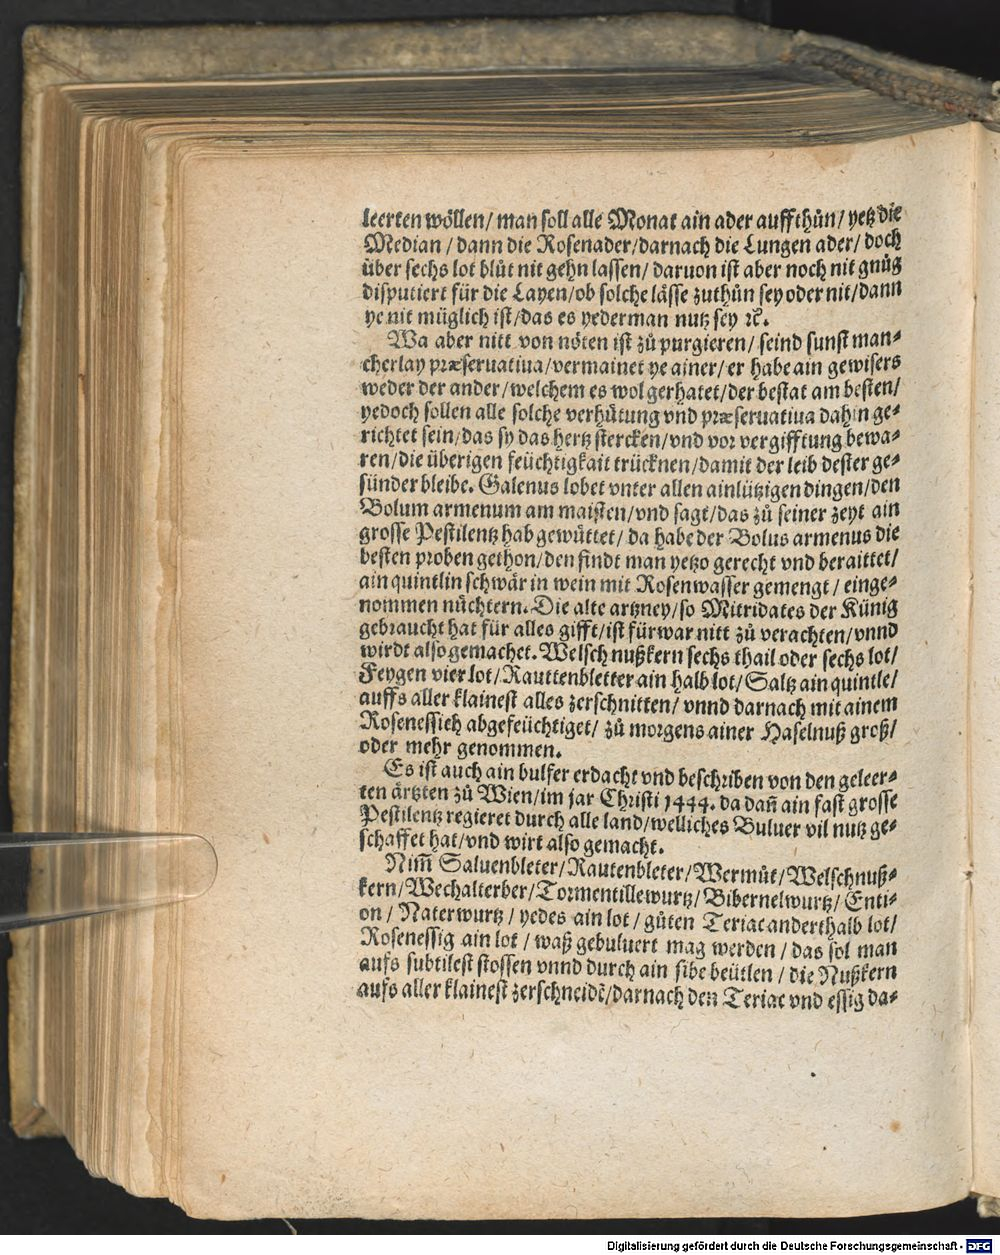 leerten wöllen/ man soll alle Monat ain ader auffthůn/ yetz die
Median / dann die Rosenader/darnach die Lungen ader/ doch
über sechs lot blůt nit gehn lassen/ daruon ist aber noch nit gnůg
disputiert für die Layen/ob solche lässe zuthůn sey oder nit/dann
ye nit müglich ist/das es yederman nutz sey ꝛc.
Wa aber nitt von nöten ist zů purgieren/ seind sunst man⸗
cherlay præseruatiua/vermainet ye ainer/er habe ain gewisers
weder der ander/welchem es wol gerhatet/der bestat am besten/
yedoch sollen alle solche verhůtung vnd præseruatiua dahin ge⸗
richtet sein/das sy das hertz stercken/vnd vor vergifftung bewa⸗
ren/die überigen feüchtigkait trücknen/damit der leib dester ge⸗
sünder bleibe. Galenus lobet vnter allen ainlützigen dingen/den
Bolum armenum am maisten/vnd sagt/das zů seiner zeyt ain
grosse Pestilentz hab gewüttet/ da habe der Bolus armenus die
besten proben gethon/den findt man yetzo gerecht vnd beraittet/
ain quintlin schwär in wein mit Rosenwasser gemengt / einge⸗
nommen nůchtern. Die alte artzney/so Mitridates der Künig
gebraucht hat für alles gifft/ist fürwar nitt zů verachten/vnnd
wirdt also gemachet. Welsch nußkern sechs thail oder sechs lot/
Feygen vier lot/Rauttenbletter ain halb lot/Saltz ain quintle/
auffs aller klainest alles zerschnitten/ vnnd darnach mit ainem
Rosenessich abgefeüchtiget/ zů morgens ainer Haselnuß groß/
oder mehr genommen.
Es ist auch ain bulfer erdacht vnd beschriben von den geleer⸗
ten ärtzten zů Wien/im jar Christi 1444. da dañ ain fast grosse
Pestilentz regieret durch alle land/welliches Buluer vil nutz ge⸗
schaffet hat/vnd wirt also gemacht.
Nim̃ Saluenbleter/Rautenbleter/Wermůt/Welschnuß⸗
kern/Wechalterber/Tormentillewurtz/Bibernelwurtz/Enti⸗
on / Naterwurtz / yedes ain lot / gůten Teriac anderthalb lot/
Rosenessig ain lot / waß gebuluert mag werden / das sol man
aufs subtilest stossen vnnd durch ain sibe beütlen / die Nußkern
aufs aller klainest zerschneidẽ/darnach den Teriac vnd essig da⸗
Digitalisierung gefördert durch die Deutsche Forschungsgemeinschaft - DFG